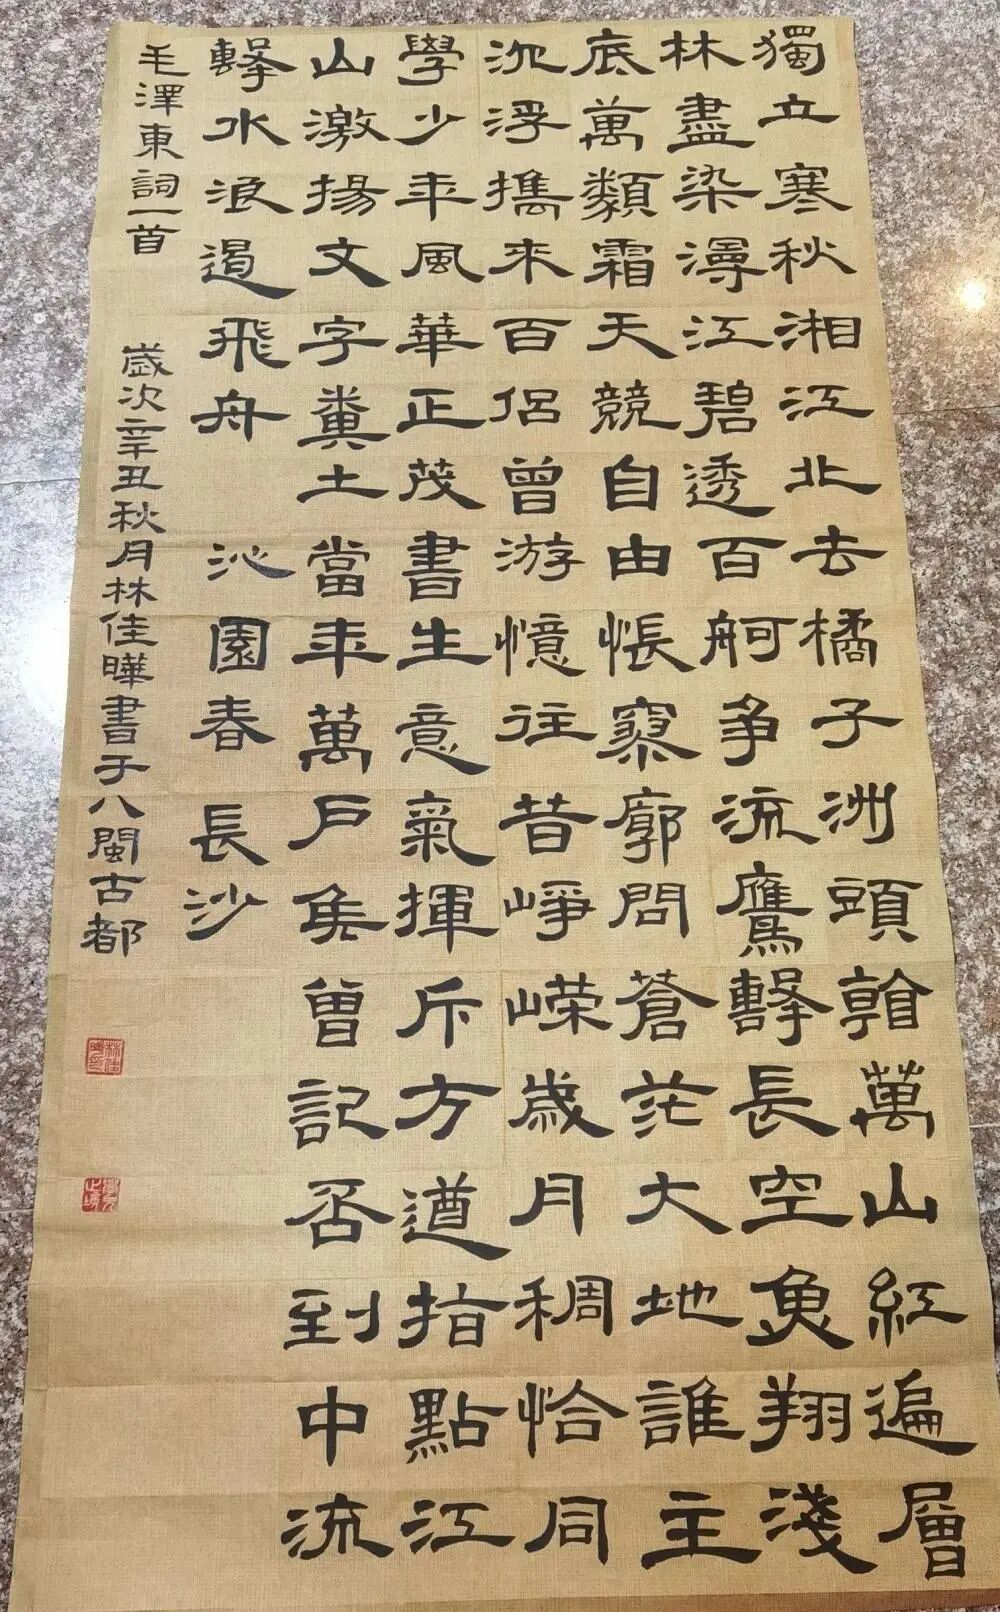 獨立寒秋湘江北去橘子洲頭看萬山紅遍層
林盡染漫江碧透百舸争流鷹擊長空魚翔淺
底萬類霜天競自由悵寥廓問蒼茫大地誰主
沉浮攜來百侶曾游憶往昔崢嶸歲月稠恰同
學少年風華正茂書生意氣揮斥方遒指點江
山激揚文字糞土當年萬戶侯曾記否到中流
擊水浪遏飛舟 沁園春 長沙
毛澤東詞一首 歲次辛丑秋月林佳曄書于八閩古都